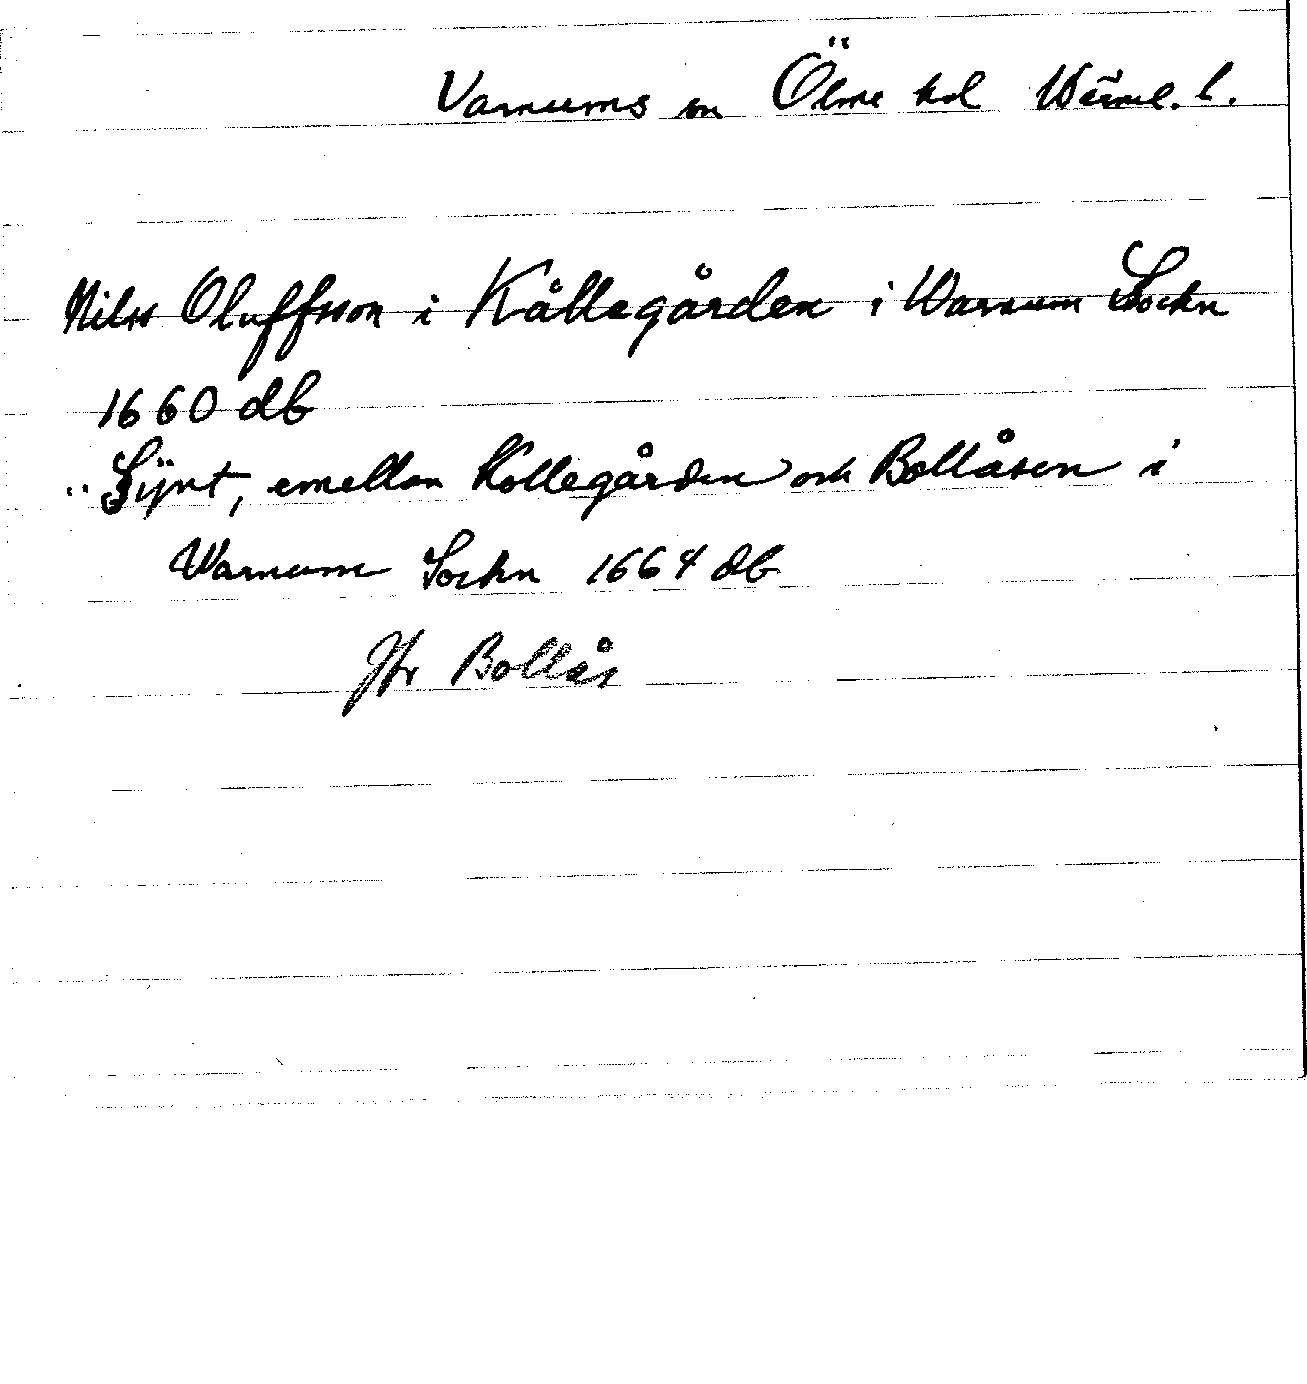 Varnums sn Ölme hd Värml. l.
Nilss Oluffsson i Kållegården i Warnum Sockn
1660 db
"Sÿnt, emellan Kollegården och Bollåsen i
Warnum Sockn 1664 db
Jfr Bollås